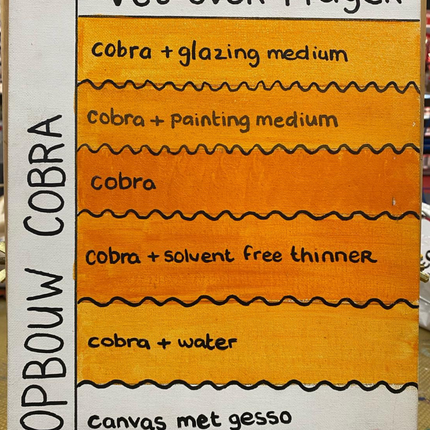 cobra + glazing medium
cobra + painting medium
cobra
cobra + solvent free thinner
cobra + water
canvas met gesso
OPBOUW COBRA